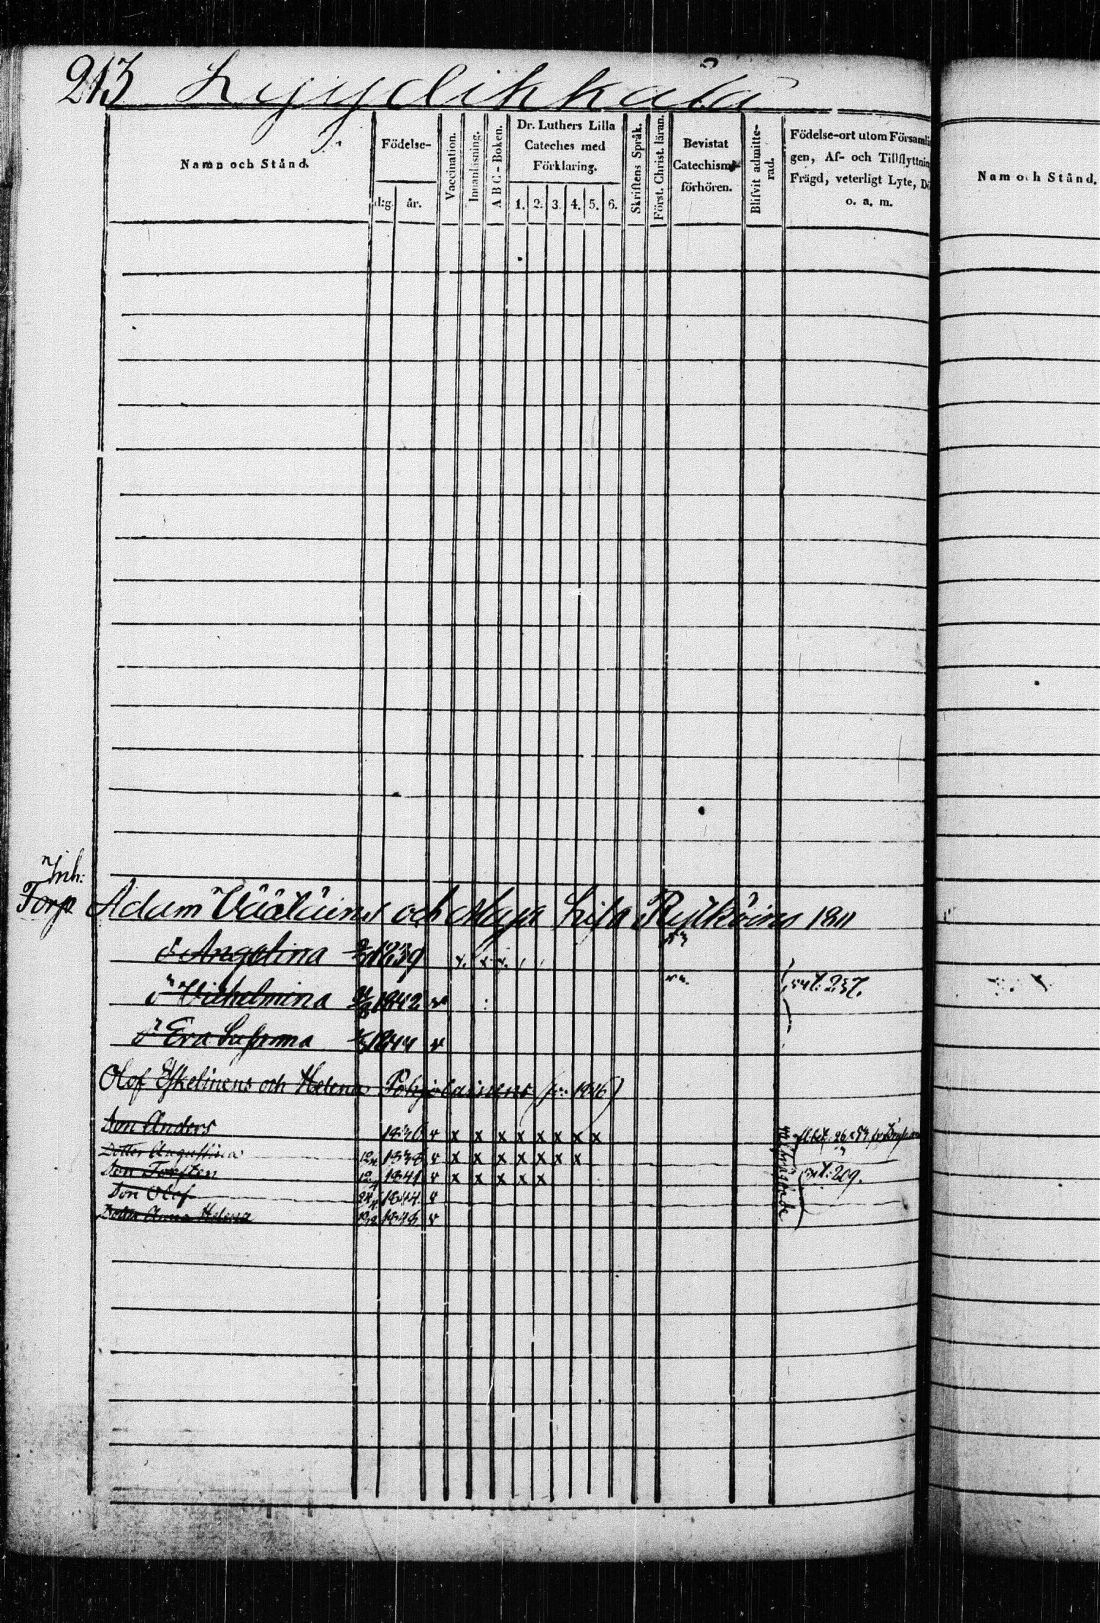 213 Lyydikkälä
Namn och Stånd.
Födelse-
dag. år.
Vaccination.
Innanläsning.
A B C - Boken.
Dr. Luthers Lilla
Cateches med
Förklaring.
1. 2. 3. 4. 5. 6.
Skriftens Språk.
Först. Christ. läran.
Bevistat
Catechismi-
förhören.
Blifvit admitte-
rad.
Födelse-ort utom Församlin
gen, Af- och Tillflyttnin
Frägd, veterligt Lyte, Dö
o. a. m.
Nam och Stånd.
Inh:
Torp Adam Väätäinens och Maja Lisa Rytkönens 1811
Angelina 1839
Wilhelmina 1842 v
Eva Susanna 1844 v
237.
Olof Eskelinens och Helena Pohjolainens 1846
Son Anders 1836 v x x x x x x x x
Dotter Augustina 12 1838 v x x x x x x x
Son Torsten 12 1841 v x x x x x 209.
Son Olof 24 1844 v
Dotter Anna Helena 1848 v